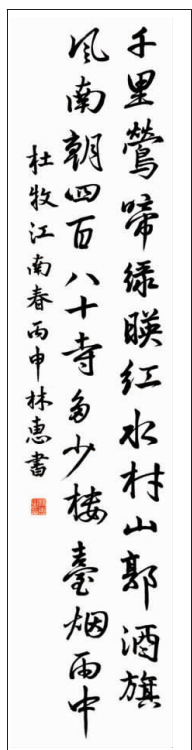 千里鶯啼绿暎红水村山郭酒旗
风南朝四百八十寺多少楼臺烟雨中
杜牧江南春丙申林惠書